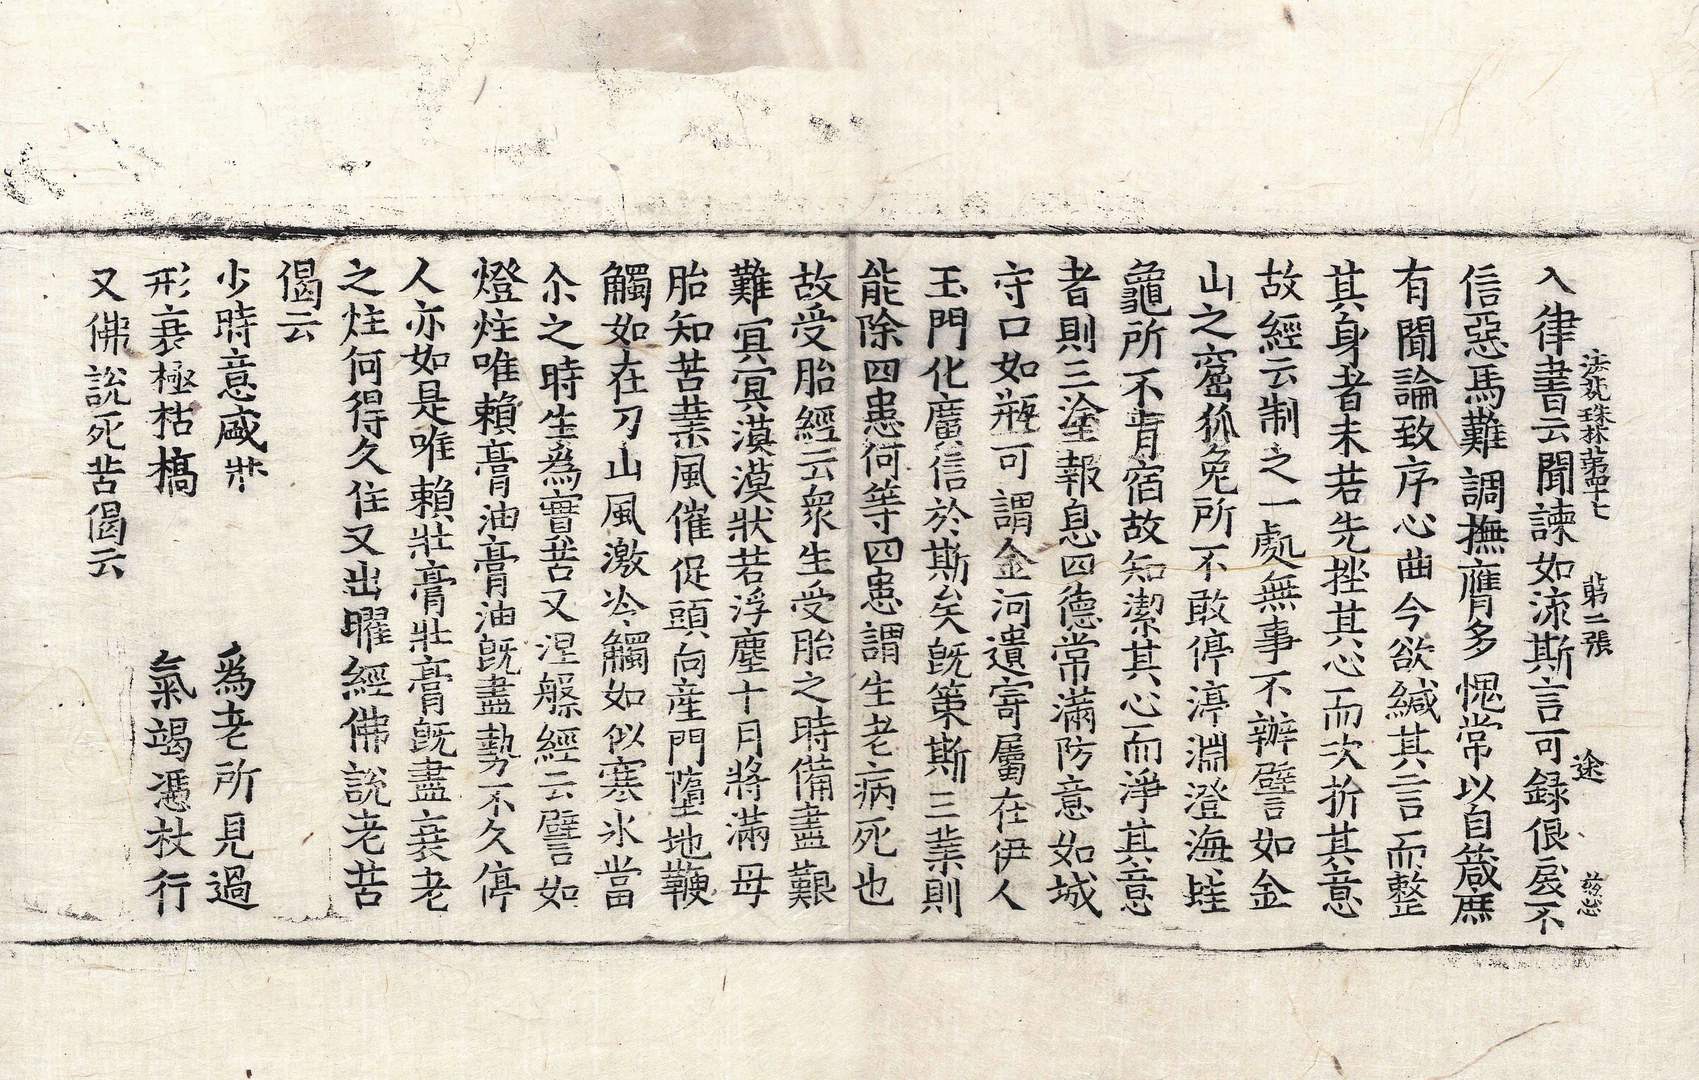 法苑珠林苐四十七　苐二張　途　玆忠
入律書云聞諫如流斯言可録佷戾不
信惡馬難調撫膺多愧常以自箴庶
有聞論致序心曲今欲緘其言而整
其身者未若先挫其心而次折其意
故經云制之一處無事不辦譬如金
山之窟狐兔所不敢停渟淵澄海蛙
龜所不肯宿故知潔其心而淨其意
者則三塗報息四德常滿防意如城
守口如瓶可謂金河遺寄屬在伊人
玉門化廣信於斯矣旣策斯三業則
能除四患何等四患謂生老病死也
故受胎經云衆生受胎之時備盡艱
難冥冥漠漠狀若浮塵十月將滿母
胎知苦業風催促頭向產門墮地鞕
觸如在刀山風激冷觸如似寒氷當
尒之時生爲實苦又涅槃經云譬如
燈炷唯賴膏油膏油旣盡勢不久停
人亦如是唯賴壯膏壯膏旣盡衰老
之炷何得久住又出曜經佛說老苦
偈云
少時意盛壯　爲老所見過
形衰極枯槁　氣竭憑杖行
又佛說死苦偈云